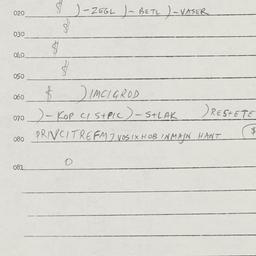 020 $ )-ZEGL )-BETL )-VASER
030 $
040 $
050 $
060 $ )IMCIGROD
070 )-KOP CI S+PIC )-S+LAK )RES+ETE
080 DRIVCITREFM7VOSIXHOBINMAJN HANT ($
081 O